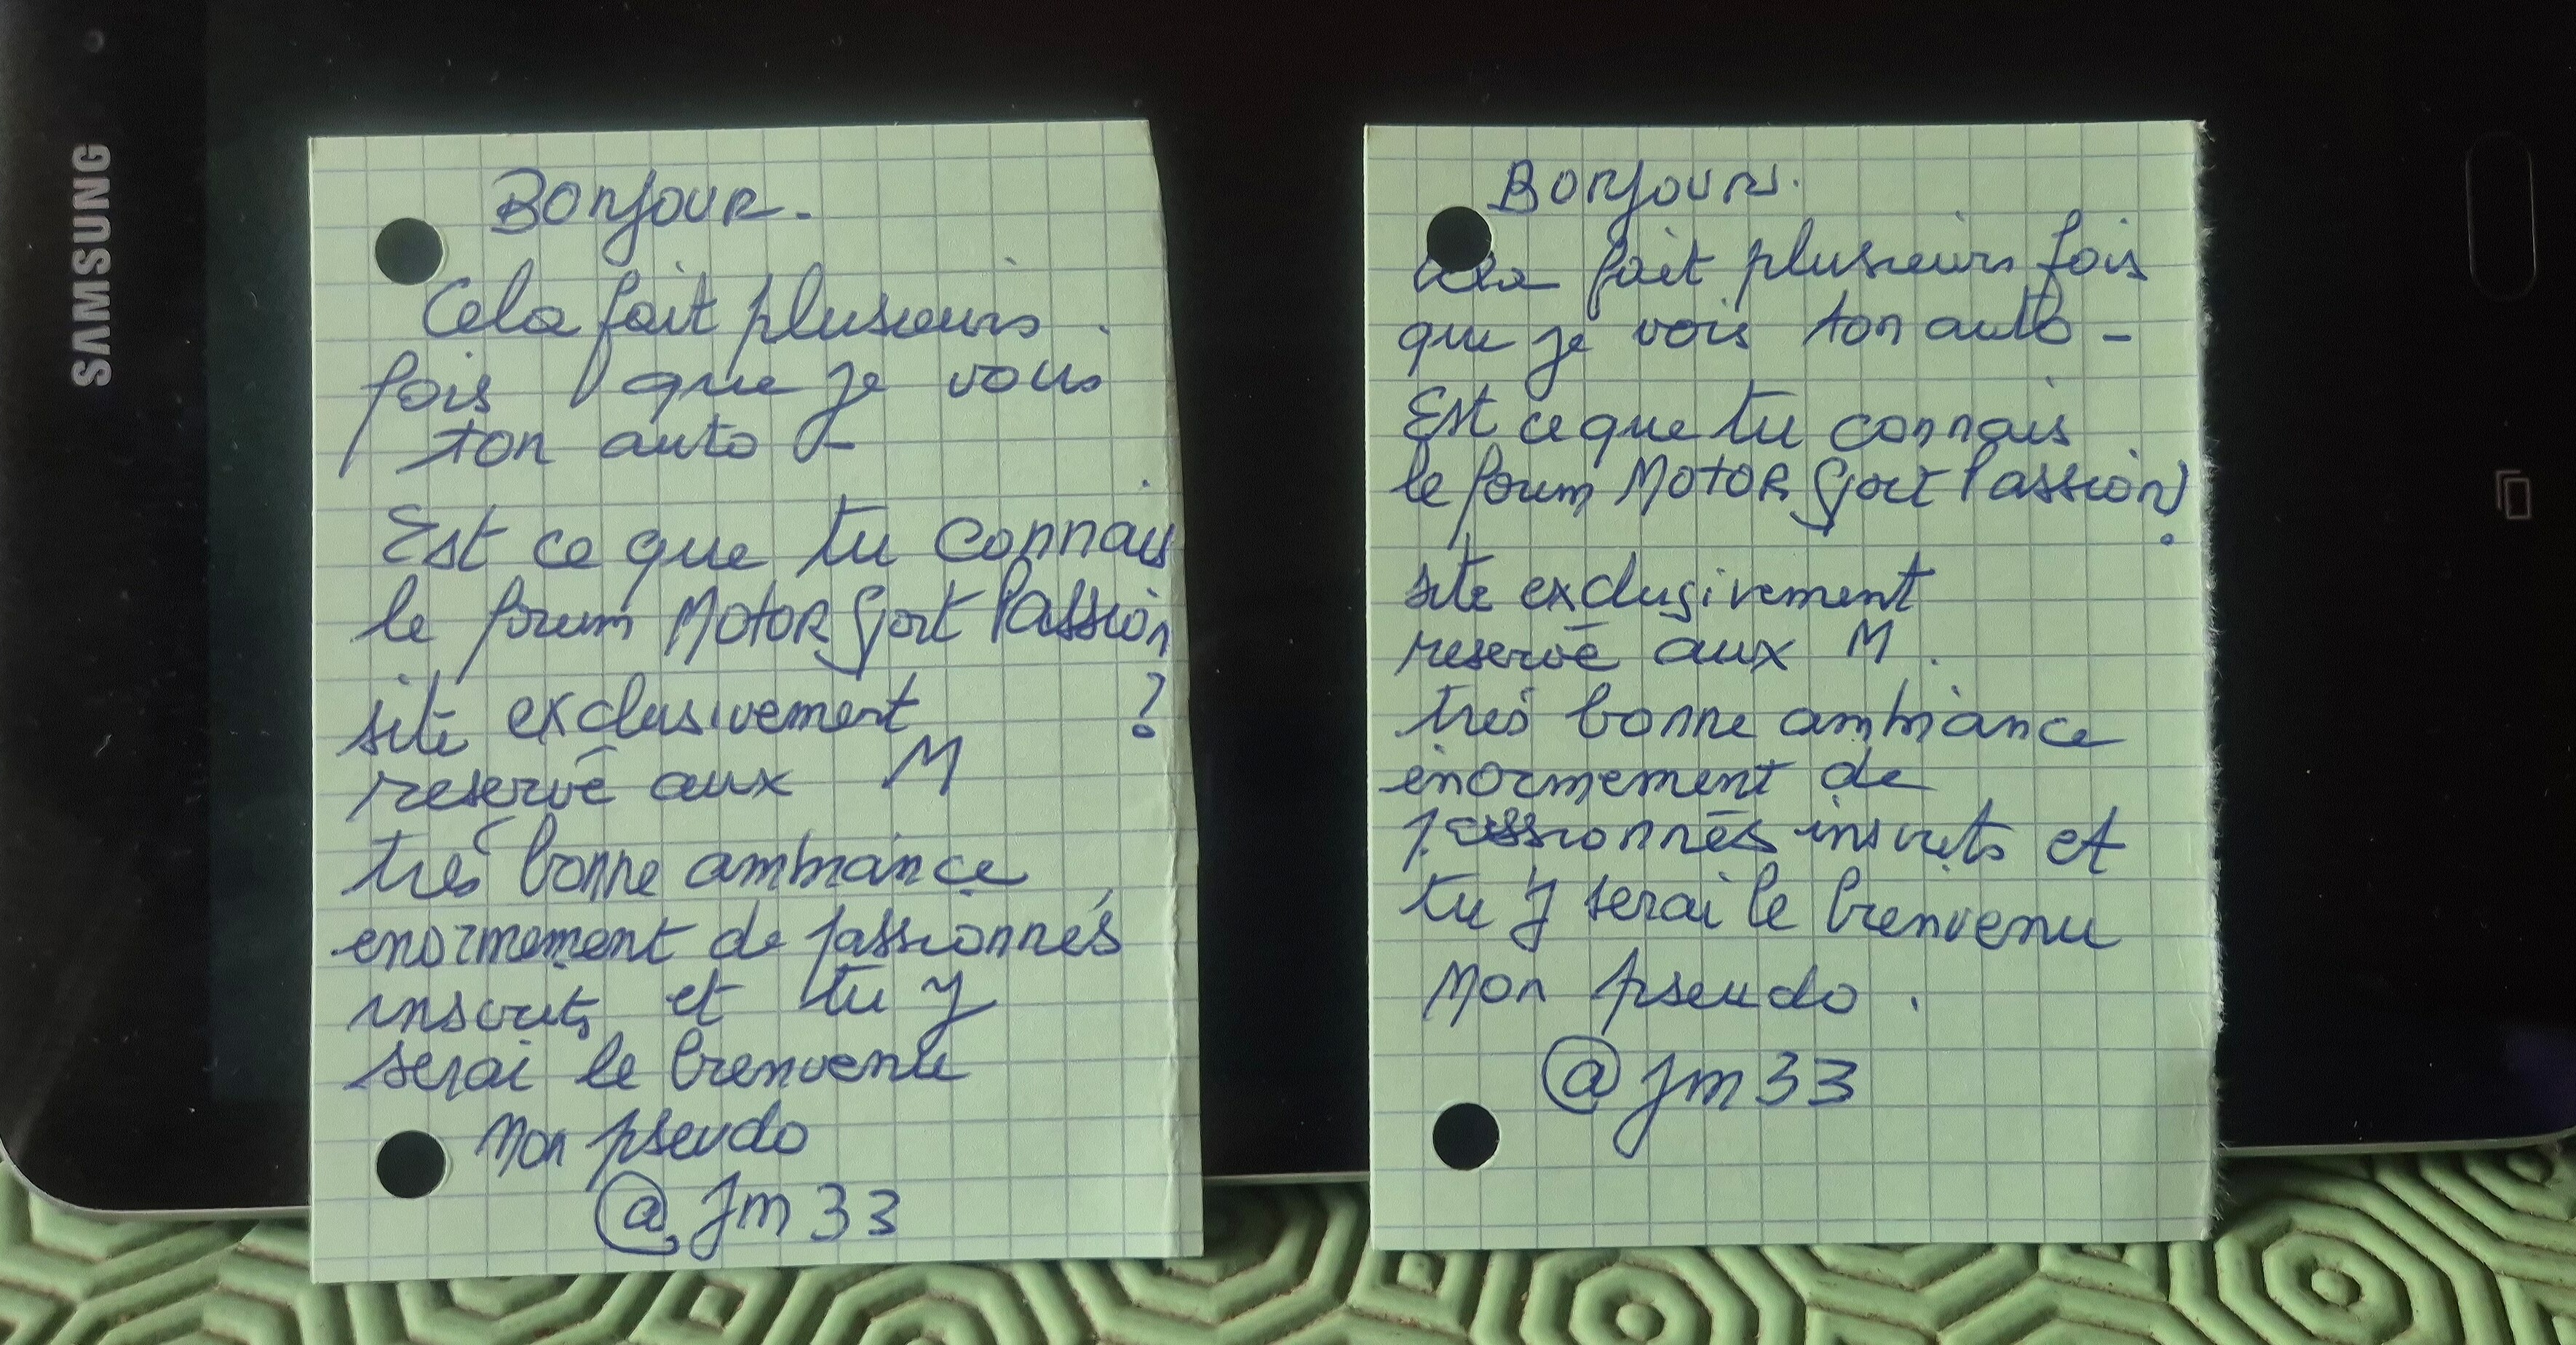 SAMSUNG
Bonjour.
Cela fait plusieurs
fois que je vous
ton auto -
Est ce que tu connais
le forum Motor Sport Passion
?
site exclusivement
reservé aux M
très bonne ambiance
enormement de passionnés
inscrits et tu y
serai le bienvenu
Mon pseudo
@Jm33
Bonjour.
Cela fait plusieurs fois
que je vois ton auto -
Est ce que tu connais
le forum Motor Sport Passion
?
site exclusivement
reservé aux M.
très bonne ambiance
enormement de
passionnés inscrits et
tu y serai le bienvenu
Mon pseudo.
@jm33